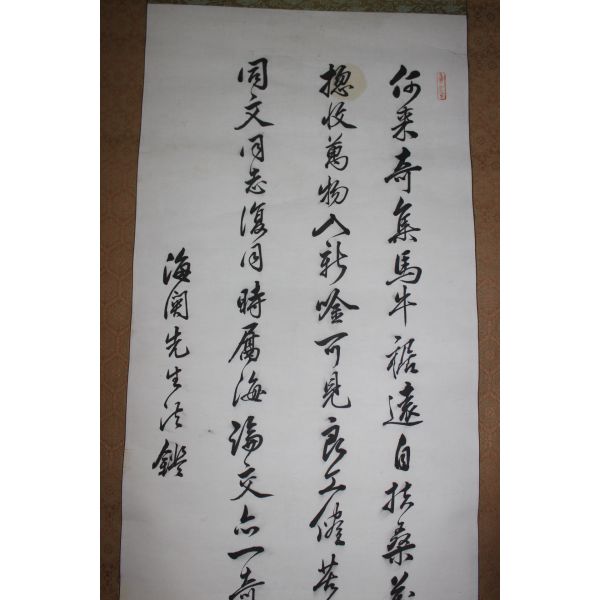 何來奇集馬牛裾遠自扶桑
揔收萬物入新唫可見良工僅苦
同文同志復同時屬海論交亦一奇
海関先生法鑑